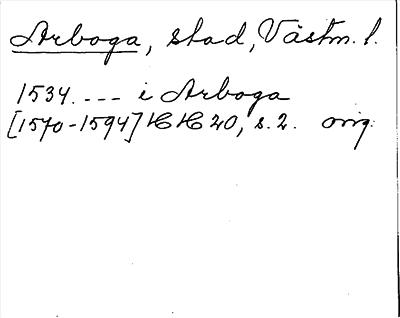 Arboga, stad, Västm. l.
1534. --- i Arboga
[1570-1594] HH 20, s. 2. orig.